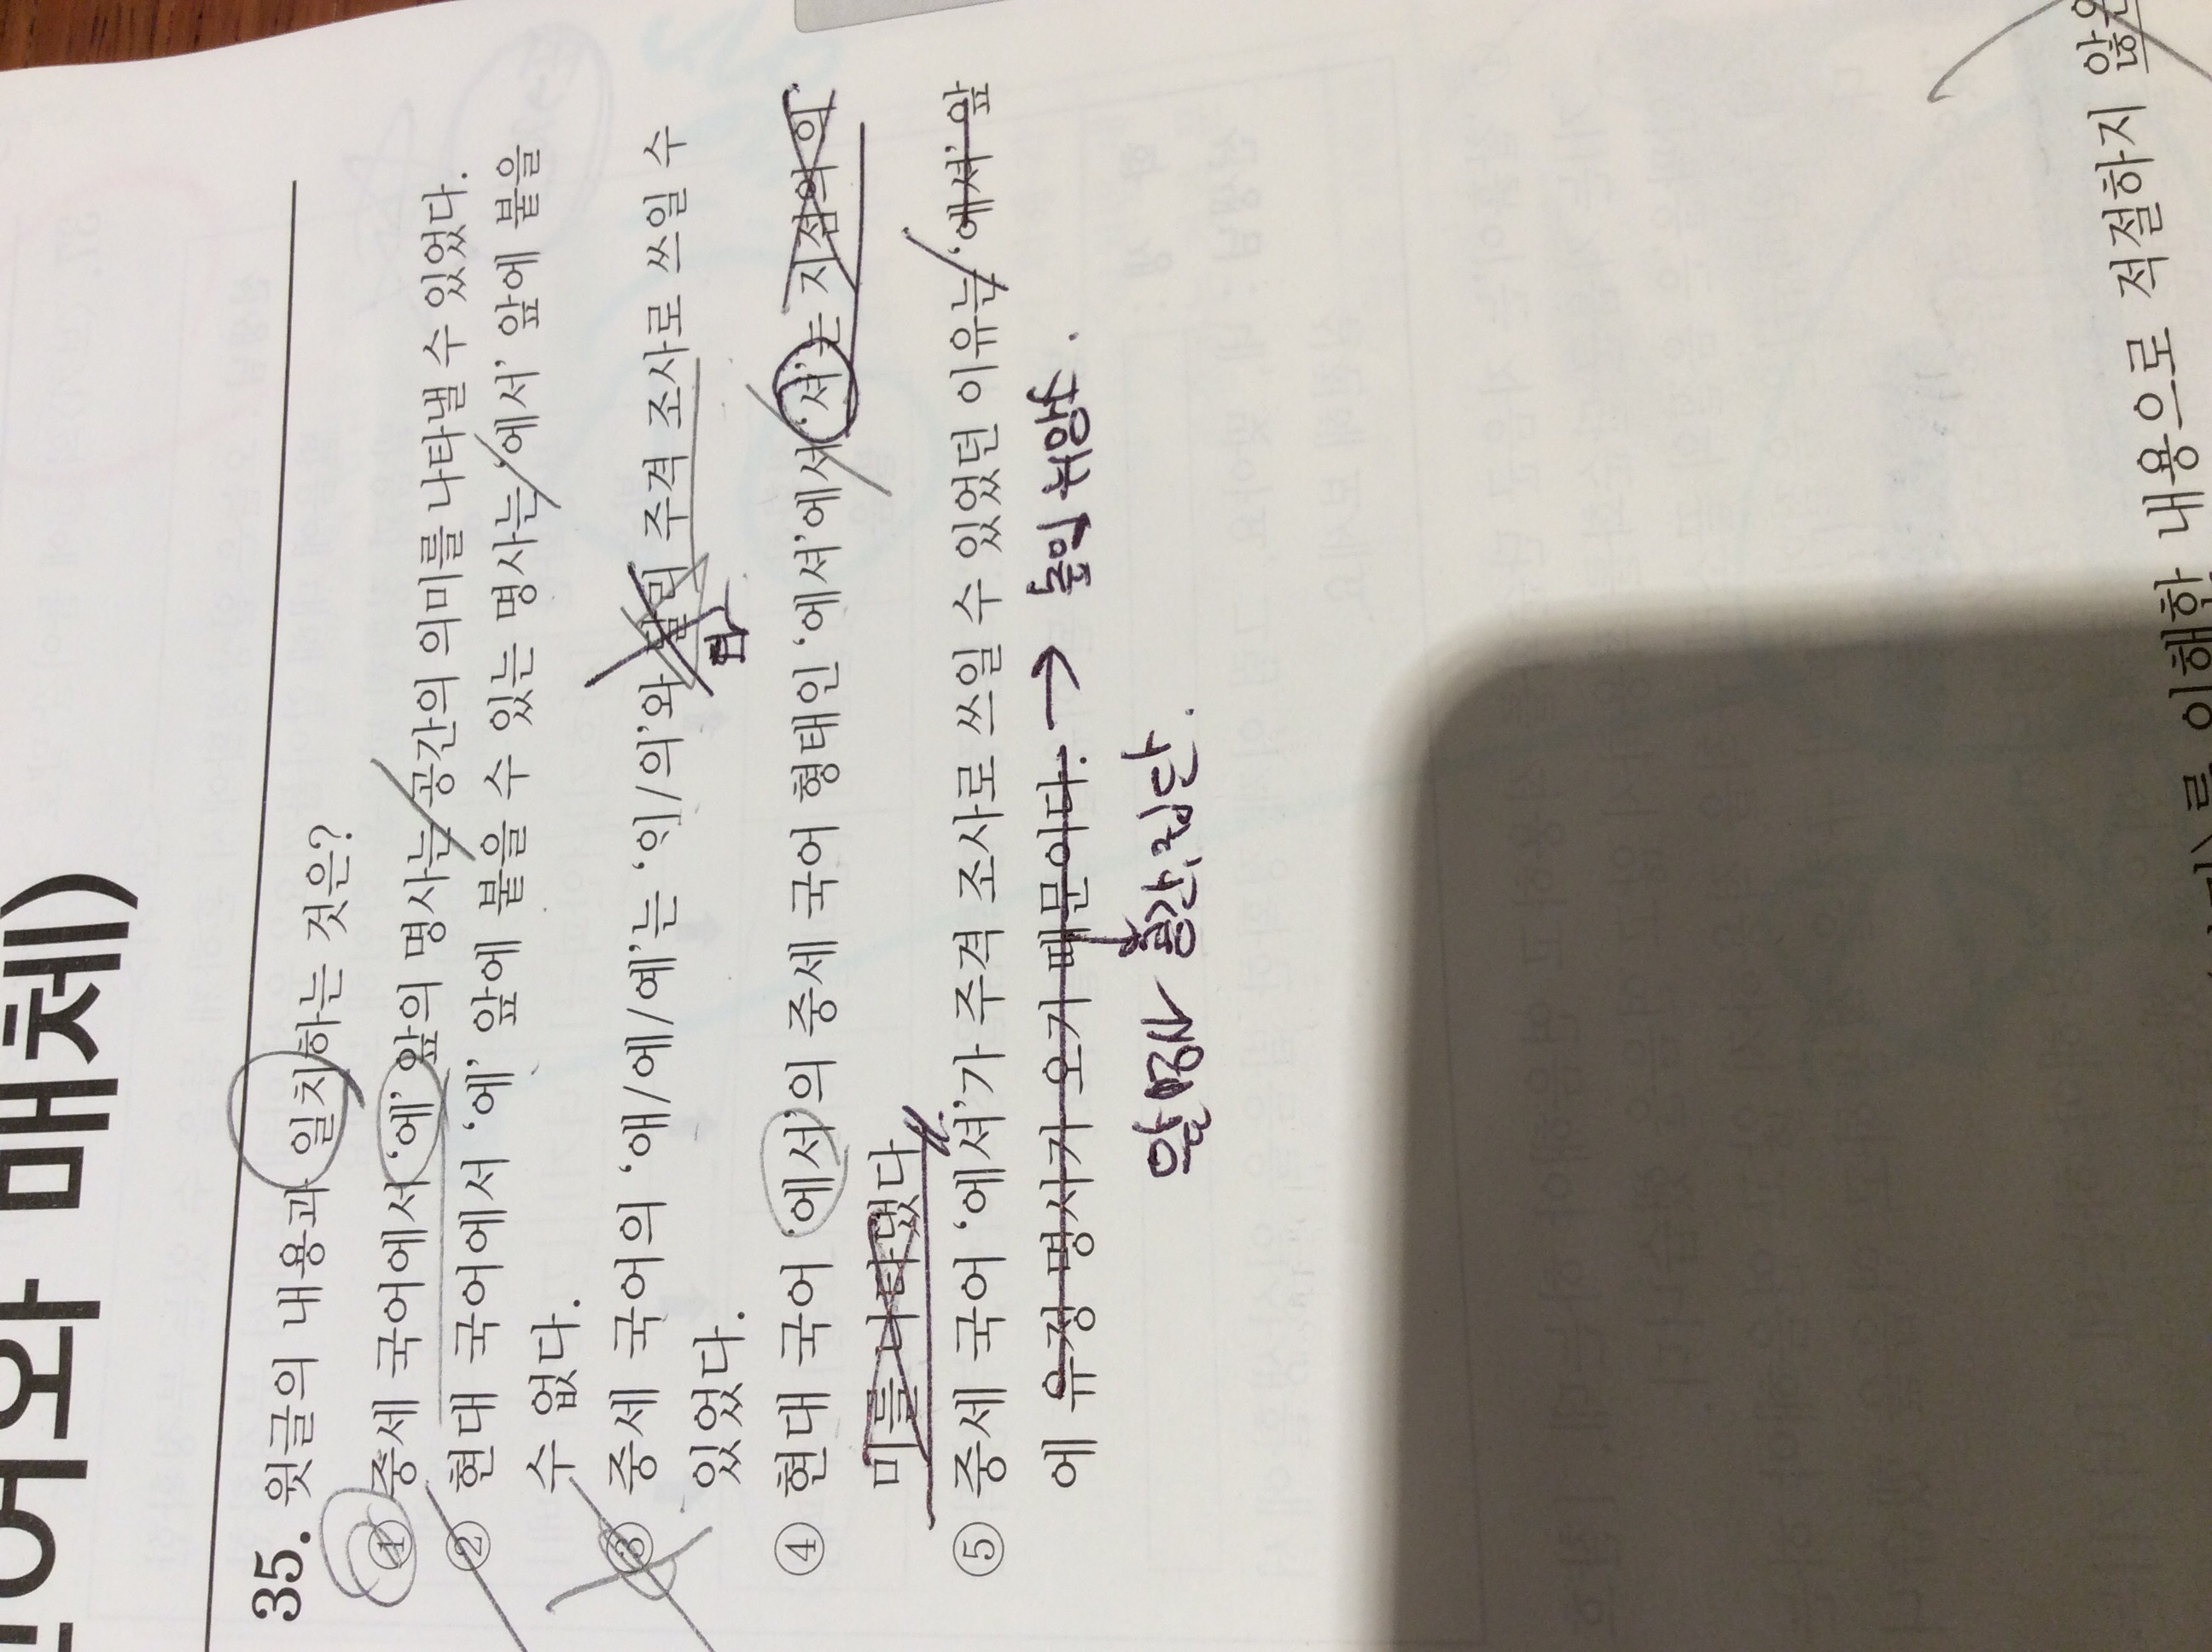 어와 매체)
35. 윗글의 내용과 일치하는 것은?
① 중세 국어에서 ‘에’ 앞의 명사는 공간의 의미를 나타낼 수 있었다.
② 현대 국어에서 ‘에’ 앞에 붙을 수 있는 명사는 ‘에서’ 앞에 붙을
수 없다.
③ 중세 국어의 ‘애/에/예’는 ‘ᄋᆡ/의’와 달리 주격 조사로 쓰일 수
있었다.
④ 현대 국어 ‘에서’의 중세 국어 형태인 ‘에셔’에서 ‘셔’는 지점의 의
미를 나타냈다.
⑤ 중세 국어 ‘에셔’가 주격 조사로 쓰일 수 있었던 이유는 ‘에셔’ 앞
에 유정 명사가 오기 때문이다. →
앞 명사 공간, 집단.
를 이해한 내용으로 적절하지 않은